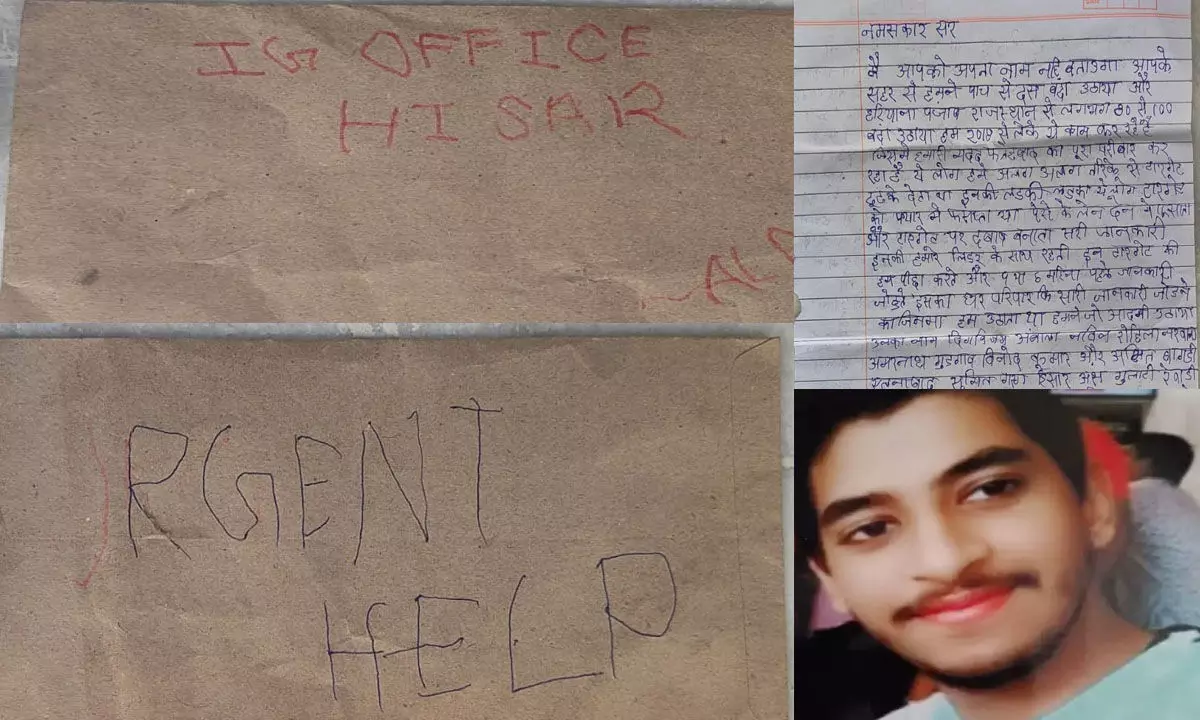 IG OFFICE
HISAR
RGENT
HELP
नमसकार सर
मै आपको अपना नाम नहि बताउगा आपके
सहर से हमने पाच से दस बंदा उठाया और
हरियाना पंजाब राजस्थान से लगभग 80 से 100
बंदा उठाया हम 2019 से लेके ये काम कर रहे है
जिसमे हमारी मदद का पुरा परीवार कर
रहा है ये लोग हमे अलग अलग तरिके से टारगेट
ढुंढके देता था इनकी लडकी लडका ये लोग टारगेट
को प्यार मे फसाता या पेसे के लेन देन मे फसाता
और टारगेट पर दबाव बनाता सारी जानकारी
इनकी हमारे लिडर के साथ रहती इन टारगेट की
हम पीछा करते और 5 या 6 महिना पहले जानकारी
जोडते इसका घर परिवार कि सारी जानकारी जोडने
हम उठाता था हमने जो आदमी उठाया
उनका नाम अंबाला नविन रोहिला नरवाना
अमरनाथ गुडगाव विनोद कुमार और अमित बागडी
सुमित गर्ग हिसार गुलाटी